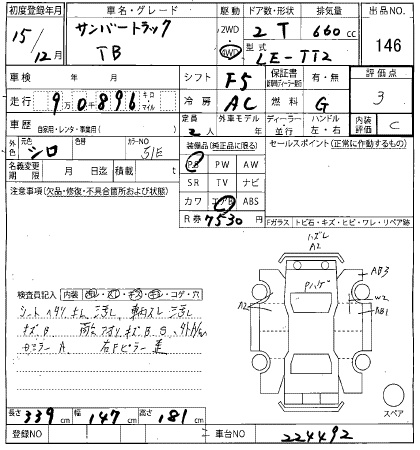 初度登録年月 車名・グレード 駆動 ドア数・形状 排気量 出品NO
15/12月 サンバートラック TB 2WD 4WD 2 T 660cc 146
型式 LE-TT2
車検 年 月 シフト F5 保証書 有・無 評価点 3
走行 9万0千896 キロ マイル 冷房 AC 燃料 G
車歴 自家用・レンタ・事業用( ) 定員 2人 外車モデル 年 ディーラー・並行 ハンドル 左・右 内装評価 C
外色 元色 シロ 色替 カラーNO 51E 装備品(純正品に限る) セールスポイント(正常に作動するもの)
名義変更期限 月 日迄 積載 t PS PW AW
SR TV ナビ
注意事項(欠品・修復・不具合箇所および状態) カワ エアB ABS
R券 7530円 Fガラス トビ石・キズ・ヒビ・ワレ・リペア跡
ハズレ
A2
Pハゲ
AB3
A2
W2
AB1
検査員記入 内装 汚レ・スレ・キズ・キレ・コゲ・穴
キズB
Dミラー A 右Fピラー
スペア
長さ 339cm 幅 147cm 高さ 181cm
登録NO 車台NO 224492